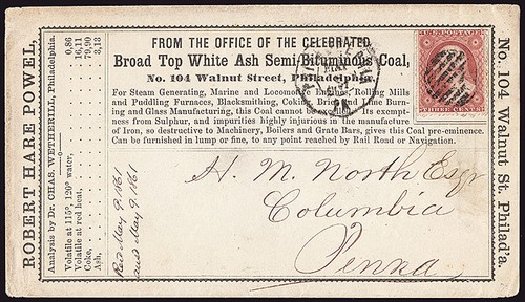 ROBERT HARE POWEL
Analysis by Dr. CHAS. WETHERILL, Philadelphia.
Volatile at 115°, 120° water, 0,86
Volatile at red heat, 16,11
Coke, 79,90
Ash, 3,13
FROM THE OFFICE OF THE CELEBRATED
Broad Top White Ash Semi-Bituminous Coal,
No. 104 Walnut Street, Philadelphia.
For Steam Generating, Marine and Locomotive Engines, Rolling Mills
and Puddling Furnaces, Blacksmithing, Coking, Brick and Lime Burn-
ing and Glass Manufacturing, this Coal cannot be excelled. Its exempt-
ness from Sulphur, and impurities highly injurious in the manufacture
of Iron, so destructive to Machinery, Boilers and Grate Bars, gives this Coal pre-eminence.
Can be furnished in lump or fine, to any point reached by Rail Road or Navigation.
THREE CENTS
Recd May 9. 1861
ansd May 9. 1861
H. M. North Esqr
Columbia
Penna
No. 104 Walnut St. Philad'a.